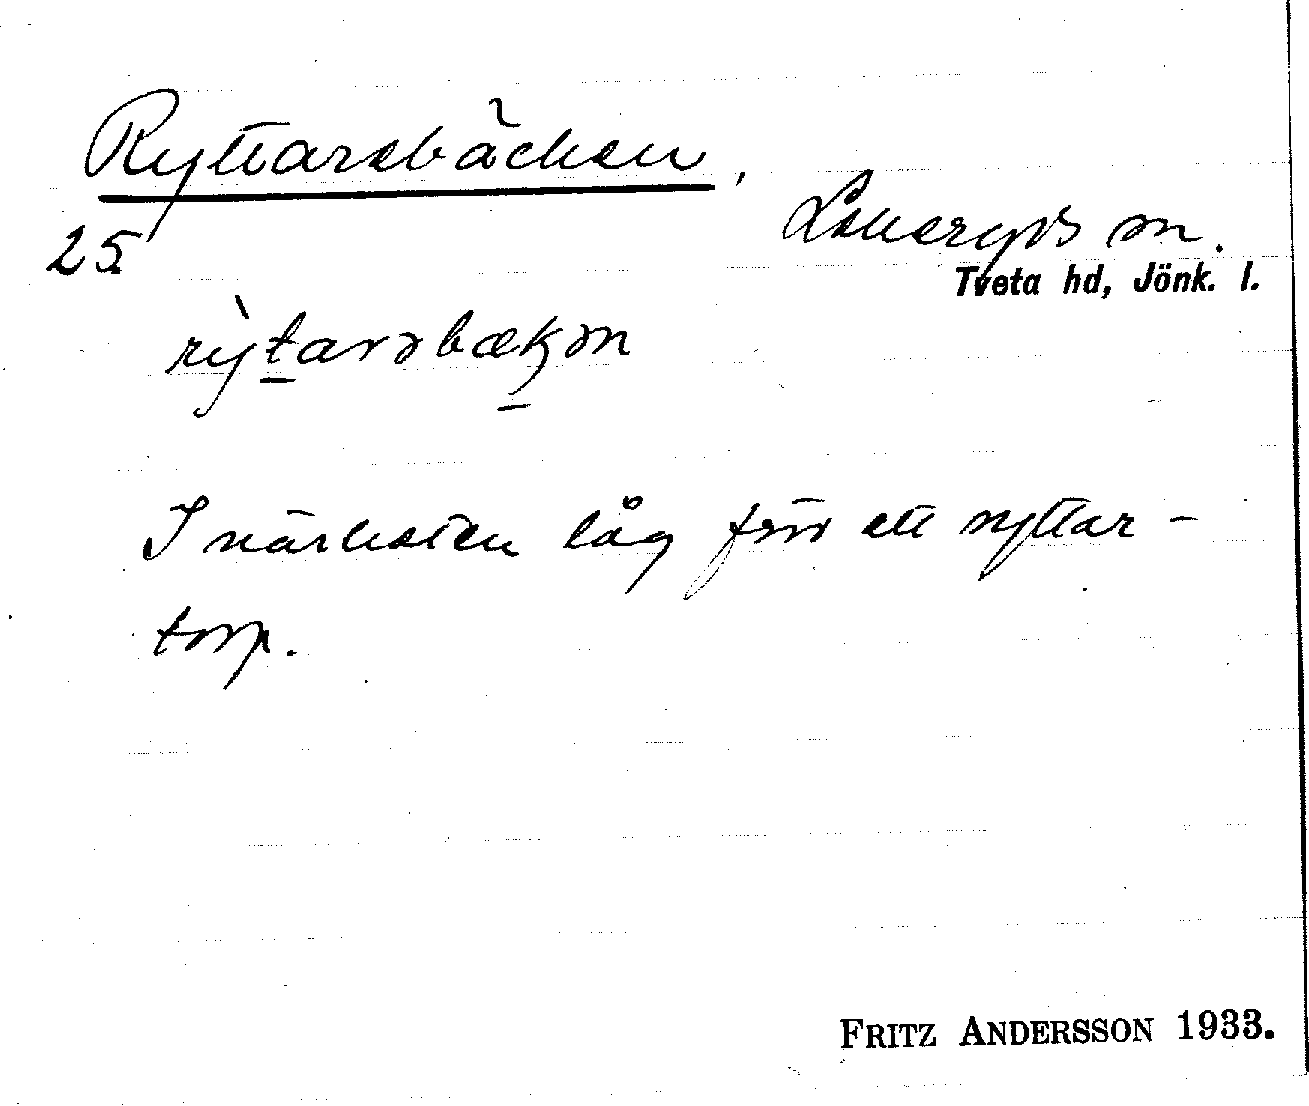 Ryttarebäcken,
Lekeryds sn.
25
Tveta hd, Jönk. l.
I närheten låg förr ett ryttar-
torp.
FRITZ ANDERSSON 1933.